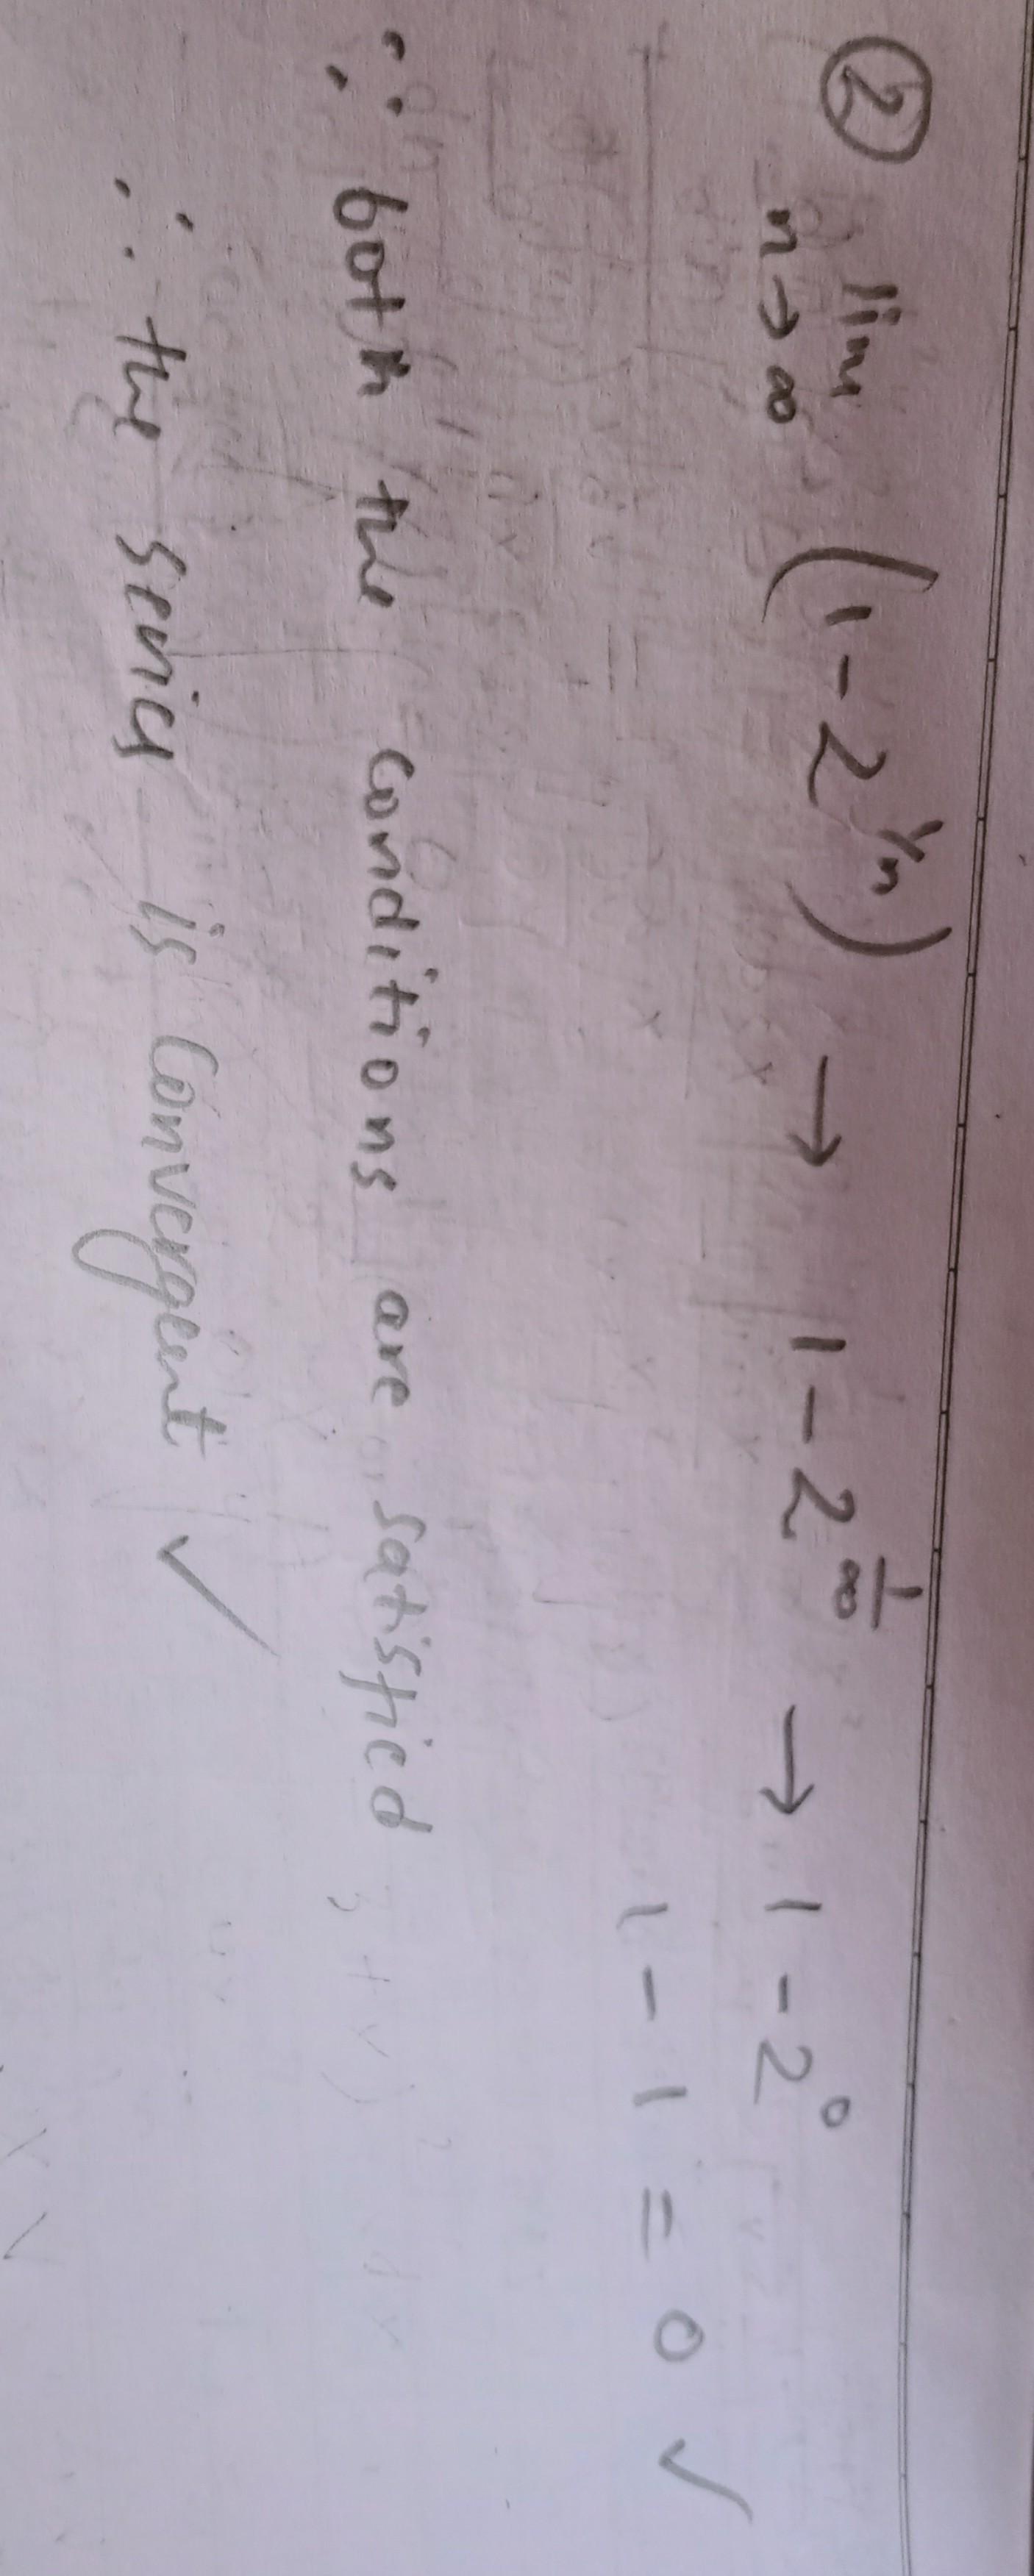 ② lim (1 - 2^{1/n}) → 1 - 2^{1/∞} → 1 - 2^0
n→∞
1 - 1 = 0 ✓
∵ both the conditions are satisfied
∴ the series is Convergent ✓